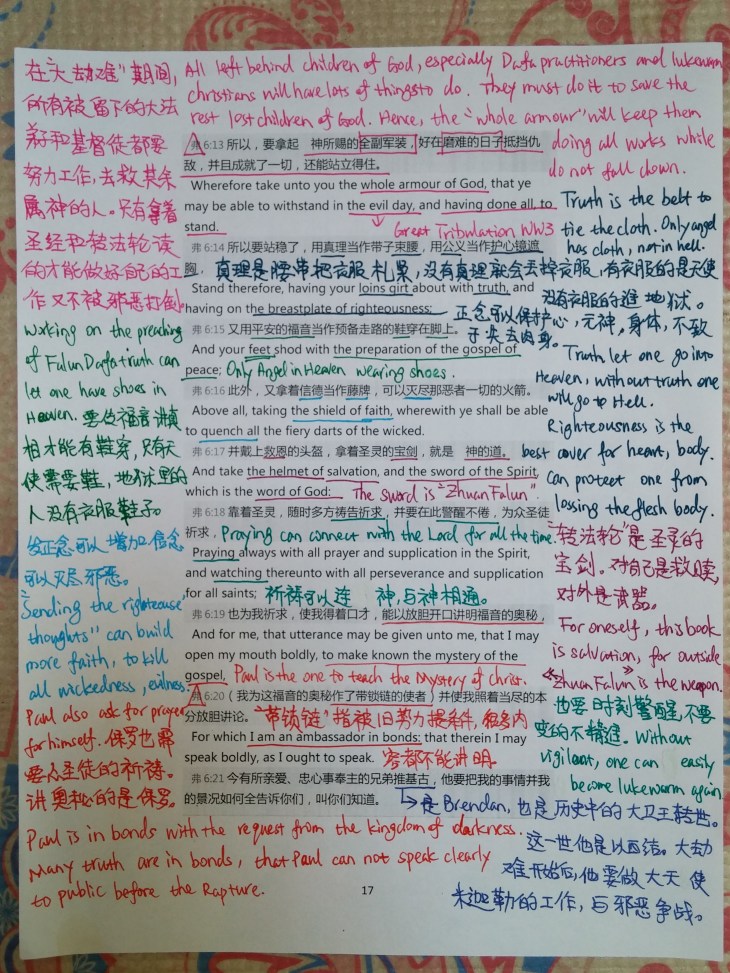 All left behind children of God, especially Dafa practitioners and lukewarm
christians will have lots of things to do. They must do it to save the
rest lost children of God. Hence, the "whole armour" will keep them
doing all works while
do not fall down.
在"大劫难"期间,
所有被留下的大法
弟和基督徒都要
努力工作,去救其余
属神的人。只有拿着
圣经和转法轮读
的才能做好自己的工
作又不被邪恶打倒。
弗 6:13 所以,要拿起 神所赐的全副军装,好在磨难的日子抵挡仇
敌,并且成就了一切,还能站立得住。
Wherefore take unto you the whole armour of God, that ye
may be able to withstand in the evil day, and having done all, to
stand.
Great Tribulation WW3
弗 6:14 所以要站稳了,用真理当作带子束腰,用公义当作护心镜遮
胸,
真理是腰带把衣服札紧,没有真理就会丢掉衣服,有衣服的是天使
没有衣服的进地狱。
Stand therefore, having your loins girt about with truth, and
having on the breastplate of righteousness;
正念可以保护心,元神,身体,不致
于失去肉身。
弗 6:15 又用平安的福音当作预备走路的鞋穿在脚上。
And your feet shod with the preparation of the gospel of
peace;
Only Angel in Heaven wearing shoes.
弗 6:16 此外,又拿着信德当作藤牌,可以灭尽那恶者一切的火箭。
Above all, taking the shield of faith, wherewith ye shall be able
to quench all the fiery darts of the wicked.
弗 6:17 并戴上救恩的头盔,拿着圣灵的宝剑,就是 神的道。
And take the helmet of salvation, and the sword of the Spirit,
which is the word of God:
The sword is "Zhuan Falun".
弗 6:18 靠着圣灵,随时多方祷告祈求,并要在此警醒不倦,为众圣徒
祈求,
Praying can connect with the Lord for all the time.
Praying always with all prayer and supplication in the Spirit,
and watching thereunto with all perseverance and supplication
for all saints;
祈祷可以连 神,与神相通。
弗 6:19 也为我祈求,使我得着口才,能以放胆开口讲明福音的奥秘,
And for me, that utterance may be given unto me, that I may
open my mouth boldly, to make known the mystery of the
gospel,
Paul is the one to teach the Mystery of Christ.
弗 6:20(我为这福音的奥秘作了带锁链的使者)并使我照着当尽的本
分放胆讲论。
"带锁链"指被旧势力提条件,很多内
容都不能讲明。
For which I am an ambassador in bonds: that therein I may
speak boldly, as I ought to speak.
弗 6:21 今有所亲爱、忠心事奉主的兄弟推基古,他要把我的事情并我
的景况如何全告诉你们,叫你们知道。
是Brendan,也是历史中的大卫王转世。
这一世他是以西结。大劫
难开始后,他要做大天使
米迦勒的工作,与邪恶争战。
Working on the preaching
of Falun Dafa truth can
let one have shoes in
Heaven. 要做福音讲真
相才能有鞋穿,只有天
使需要鞋,地狱里的
人没有衣服鞋子。
发正念可以增加信念
可以灭尽邪恶。
"Sending the righteouse
thoughts" can build
more faith, to kill
all wickedness, evilness.
Paul also ask for prayer
for himself. 保罗也需
要众圣徒的祈祷。
讲奥秘的是保罗。
Paul is in bonds with the request from the kingdom of darkness.
Many truth are in bonds, that Paul can not speak clearly
to public before the Rapture.
Truth is the belt to
tie the cloth. Only angel
has cloth, not in hell.
Truth let one go into
Heaven, without truth one
will go to Hell.
Righteousness is the
best cover for heart, body.
can protect one from
lossing the flesh body.
"转法轮"是圣灵的
宝剑。对自己是救赎,
对外是武器。
For oneself, this book
is salvation, for outside
《Zhuan Falun》is the weapon.
也要时刻警醒,不要
变的不精进。Without
vigilant, one can easily
become lukewarm again
17